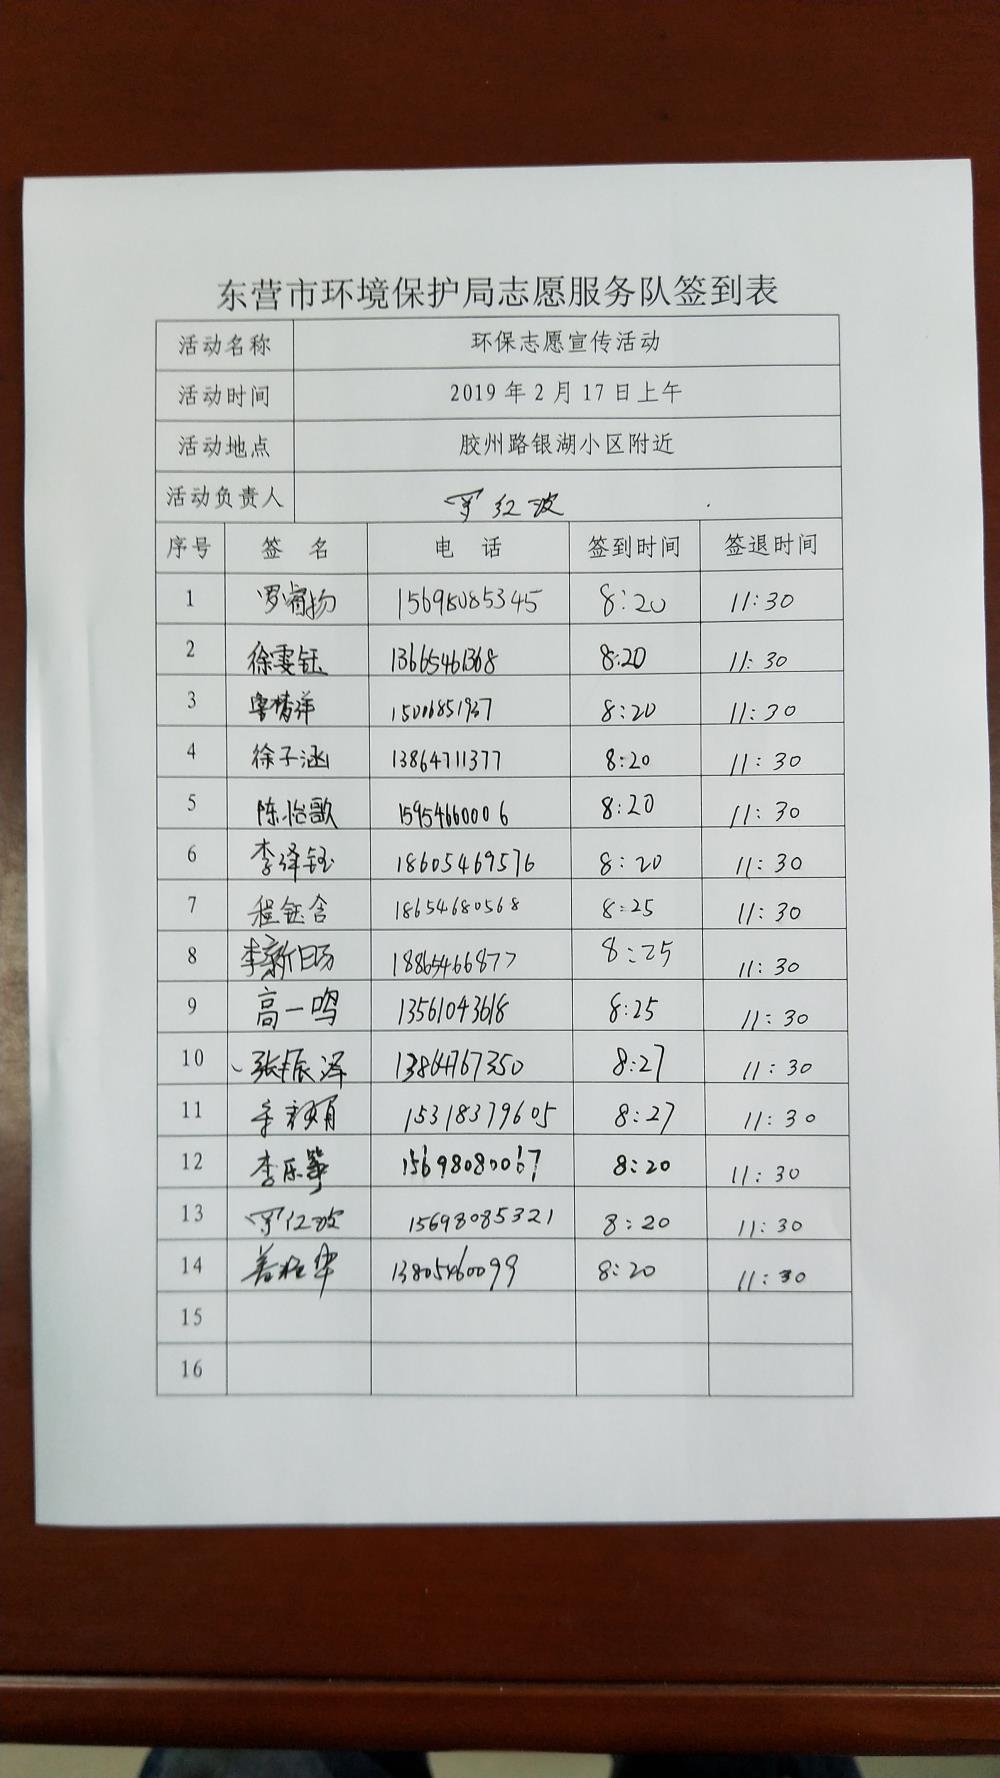 东营市环境保护局志愿服务队签到表
活动名称 环保志愿宣传活动
活动时间 2019年2月17日上午
活动地点 胶州路银湖小区附近
活动负责人 罗红波
序号 签名 电话 签到时间 签退时间
1 罗宥扬 15698085345 8:20 11:30
2 徐雯钰 13665461368 8:20 11:30
3 8:20 11:30
4 徐子涵 13864711377 8:20 11:30
5 陈怡歌 15954660006 8:20 11:30
6 李泽钰 18605469576 8:20 11:30
7 程钰含 18654680568 8:25 11:30
8 李新旸 18865466877 8:25 11:30
9 高一鸣 13561043618 8:25 11:30
10 张振泽 13864767350 8:27 11:30
11 15318379605 8:27 11:30
12 李乐筝 15698080067 8:20 11:30
13 罗红波 15698085321 8:20 11:30
14 13805460099 8:20 11:30
15
16